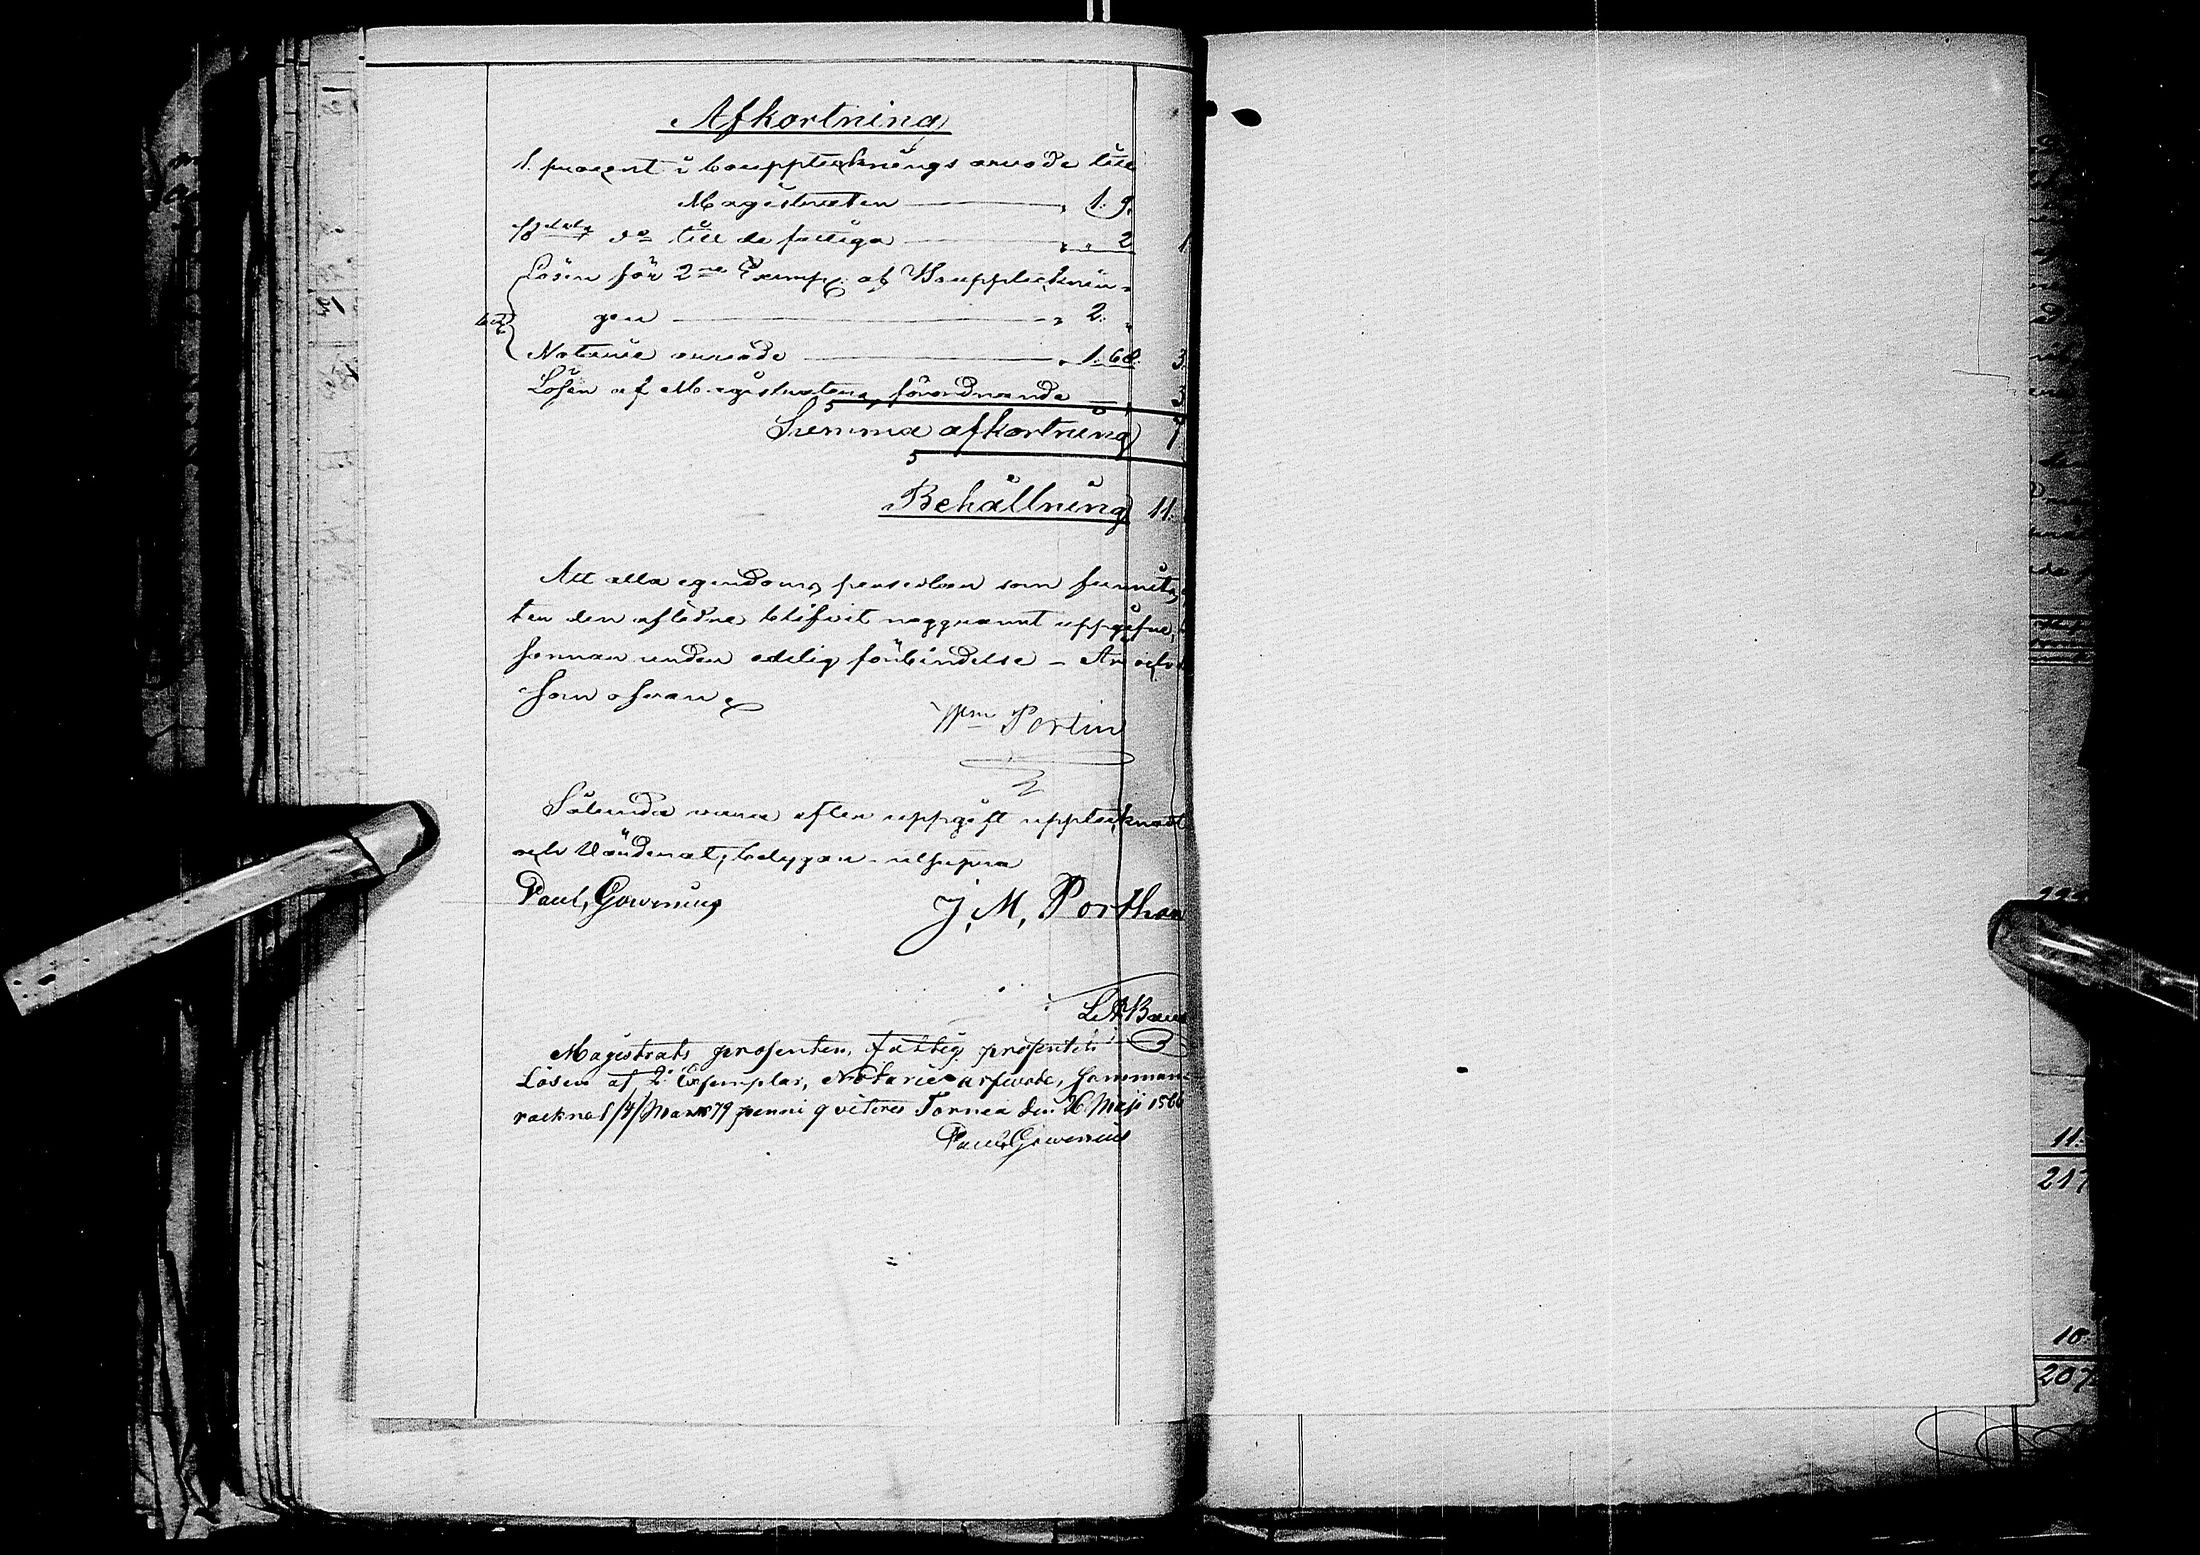 Afkortning
1. procent i bouppteckningsarvode till
Magistraten " 1. 9.
1/8 dels do till de fattiga " " 2 1
Lösen för 2ne Exempl. af Boupptecknin-
gen " 2. "
Notarie arvode " 1. 68. 3.
Lösen af Magistratens förordnande 3
Summa afkortning 7
Behållning 11.
Att alla egendoms persedlar som funnits
ten den aflidne blifvit noggrannt uppgifne,
hannan under edelig förbindelse – År och
som ofvan
Portin
Sålunda vara efter uppgift upptecknadt
och värderat, betygar ut supra
Paul Gowenius J. M. Porthan
L. A. Bau
Magistrats prosenten, fattig prosenten
Lösen af 2. Exsemplar, Notarie arfvode, samman-
räknat /4/ Mark 79 penni qviteres Tornea den 26 Maji 186
Paul Gowenius
11.
217
10
207